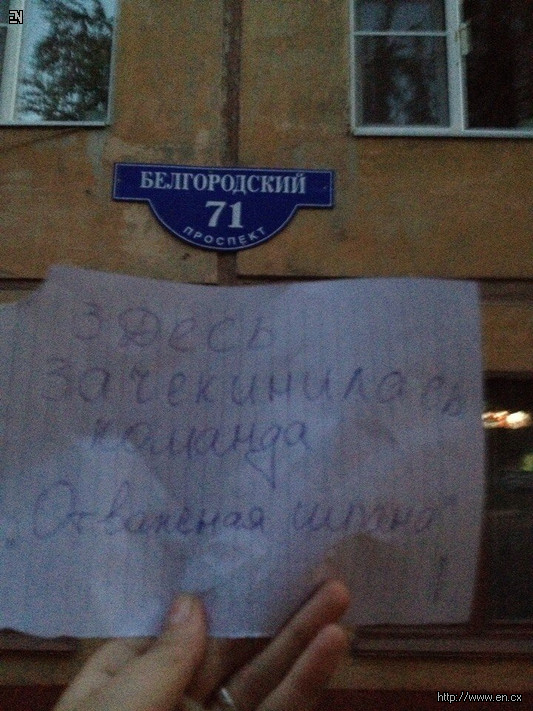 EN
БЕЛГОРОДСКИЙ
71
ПРОСПЕКТ
Здесь
зачекинилась
команда
"Отважная шпана"
http://www.en.cx